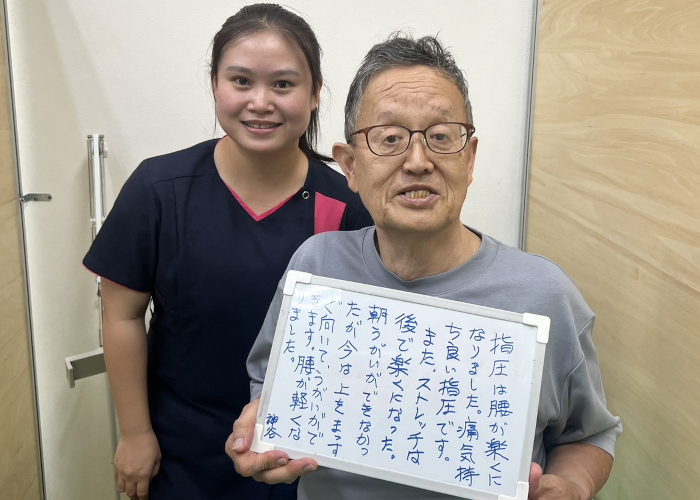 指圧は腰が楽くに
なりました。痛気持
ち良い指圧です。
また、ストレッチは
後で楽くになった。
朝うがいができなかっ
たが今は上をまっす
ぐ向いて、うがいがで
きます。腰が軽くな
りました。
神谷